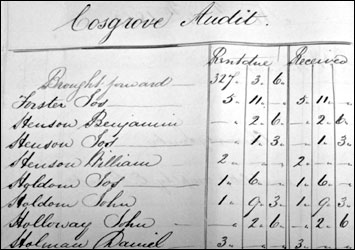 Cosgrove Audit.
Rent due Received
Brought forward 327. 3. 6.
Forster Jos 5. 11. „ 5. 11. „
Henson Benjamin „ 2. 6. „ 2. 6
Henson Jos „ 1. 3. „ 1. 3.
Henson William 2. „ „ 2. „ „
Holdom Jos 1. 6. „ 1. 6. „
Holdom John 1. 9. 3 1. 9. 3
Holloway John „ 2. 6 „ 2. 6
Holman Daniel 3. „ „ 3. „ „